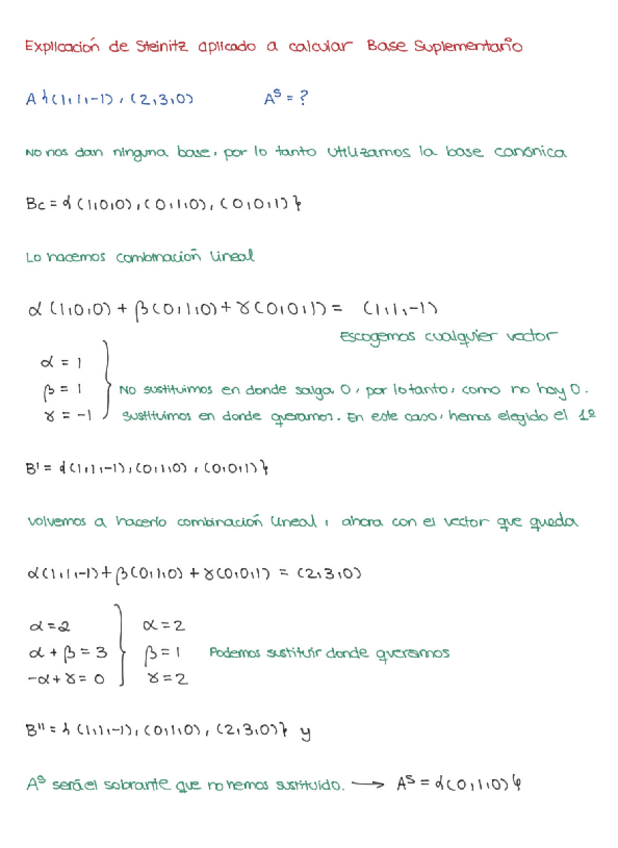 Explicación de Steinitz aplicado a calcular Base Suplementario
A {(1,1,-1), (2,3,0)    Aˢ = ?
No nos dan ninguna base, por lo tanto utilizamos la base canónica
Bc = {(1,0,0), (0,1,0), (0,0,1)}
Lo hacemos combinación lineal
α(1,0,0) + β(0,1,0) + γ(0,0,1) = (1,1,-1)
Escogemos cualquier vector
α = 1
β = 1    No sustituimos en donde salga 0, por lo tanto, como no hay 0.
γ = -1    Sustituimos en donde queramos. En este caso, hemos elegido el 1º
B' = {(1,1,-1), (0,1,0), (0,0,1)}
Volvemos a hacerlo combinación lineal, ahora con el vector que queda
α(1,1,-1) + β(0,1,0) + γ(0,0,1) = (2,3,0)
α = 2    α = 2
α + β = 3    β = 1    Podemos sustituir donde queramos
-α + γ = 0    γ = 2
B'' = {(1,1,-1), (0,1,0), (2,3,0)} y
Aˢ será el sobrante que no hemos sustituido. → Aˢ = {(0,1,0)}